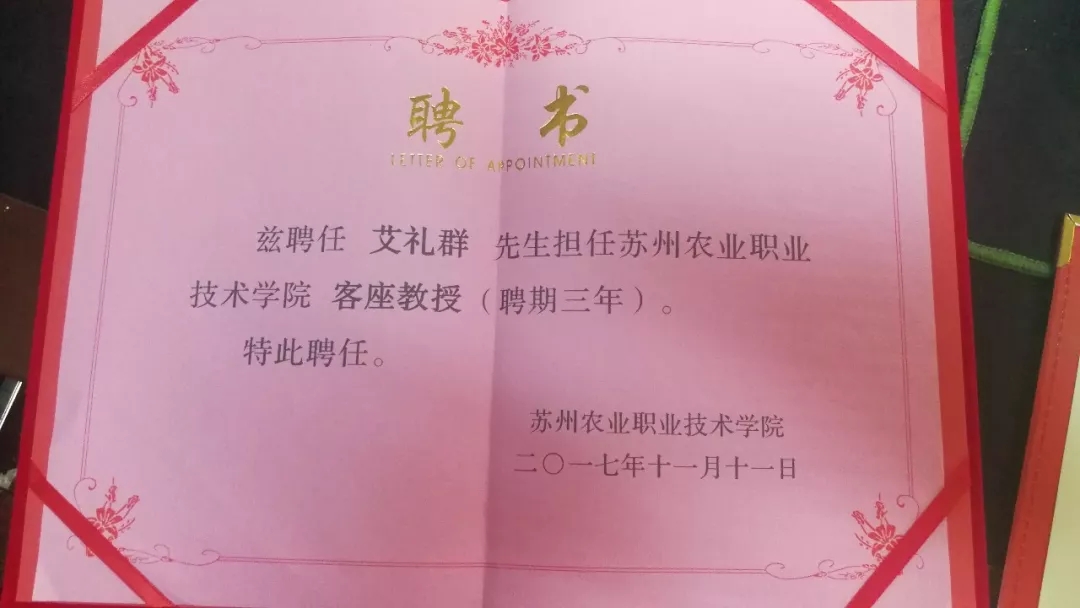 聘 书
LETTER OF APPOINTMENT
兹聘任 艾礼群 先生担任苏州农业职业
技术学院 客座教授（聘期三年）。
特此聘任。
苏州农业职业技术学院
二〇一七年十一月十一日